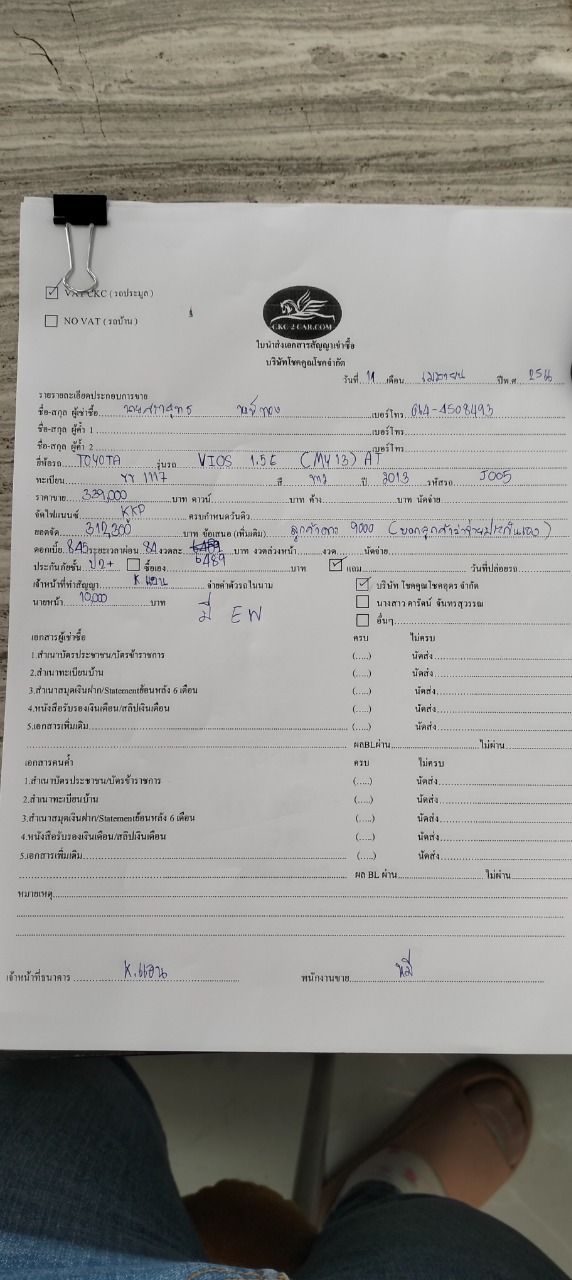 VAT CKC ( รถประมูล )
NO VAT ( รถบ้าน )
CKC 2 CAR.COM
ใบนำส่งเอกสารสัญญาเช่าซื้อ
บริษัทโชคคูณโชคจำกัด
วันที่ 11 เดือน เมษายน ปีพ.ศ. 2566
รายละเอียดประกอบการขาย
ชื่อ-สกุล ผู้เช่าซื้อ เบอร์โทร. 064-4508493
ชื่อ-สกุล ผู้ค้ำ 1 เบอร์โทร
ชื่อ-สกุล ผู้ค้ำ 2 เบอร์โทร
ยี่ห้อรถ TOYOTA รุ่นรถ VIOS 1.5E (MY13) AT
ทะเบียน 1117 สี ขาว ปี 2013 รหัสรถ J005
ราคาขาย 339,000 บาท ดาวน์ บาท ค้าง บาท นัดจ่าย
จัดไฟแนนซ์ KKP ครบกำหนดวันดิว
ยอดจัด บาท ข้อเสนอ (เพิ่มเติม) 9000
ดอกเบี้ย 8.45 ระยะเวลาผ่อน 84 งวดละ 6489 บาท งวดล่วงหน้า งวด นัดจ่าย
ประกันภัยชั้น ป2+ ซื้อเอง บาท แถม วันที่ปล่อยรถ
เจ้าหน้าที่ทำสัญญา K แอน จ่ายค่าตัวรถในนาม บริษัท โชคคูณโชคอุดร จำกัด
นายหน้า 10,000 บาท มี EW นางสาว ดารัตน์ จันทรสุวรรณ
อื่นๆ
เอกสารผู้เช่าซื้อ ครบ ไม่ครบ
1.สำเนาบัตรประชาชน/บัตรข้าราชการ (.....) นัดส่ง
2.สำเนาทะเบียนบ้าน (.....) นัดส่ง
3.สำเนาสมุดเงินฝาก/Statementย้อนหลัง 6 เดือน (.....) นัดส่ง
4.หนังสือรับรองเงินเดือน/สลิปเงินเดือน (.....) นัดส่ง
5.เอกสารเพิ่มเติม (.....) นัดส่ง
ผลBLผ่าน ไม่ผ่าน
เอกสารคนค้ำ ครบ ไม่ครบ
1.สำเนาบัตรประชาชน/บัตรข้าราชการ (.....) นัดส่ง
2.สำเนาทะเบียนบ้าน (.....) นัดส่ง
3.สำเนาสมุดเงินฝาก/Statementย้อนหลัง 6 เดือน (.....) นัดส่ง
4.หนังสือรับรองเงินเดือน/สลิปเงินเดือน (.....) นัดส่ง
5.เอกสารเพิ่มเติม (.....) นัดส่ง
ผล BL ผ่าน ไม่ผ่าน
หมายเหตุ
เจ้าหน้าที่ธนาคาร K.แอน พนักงานขาย